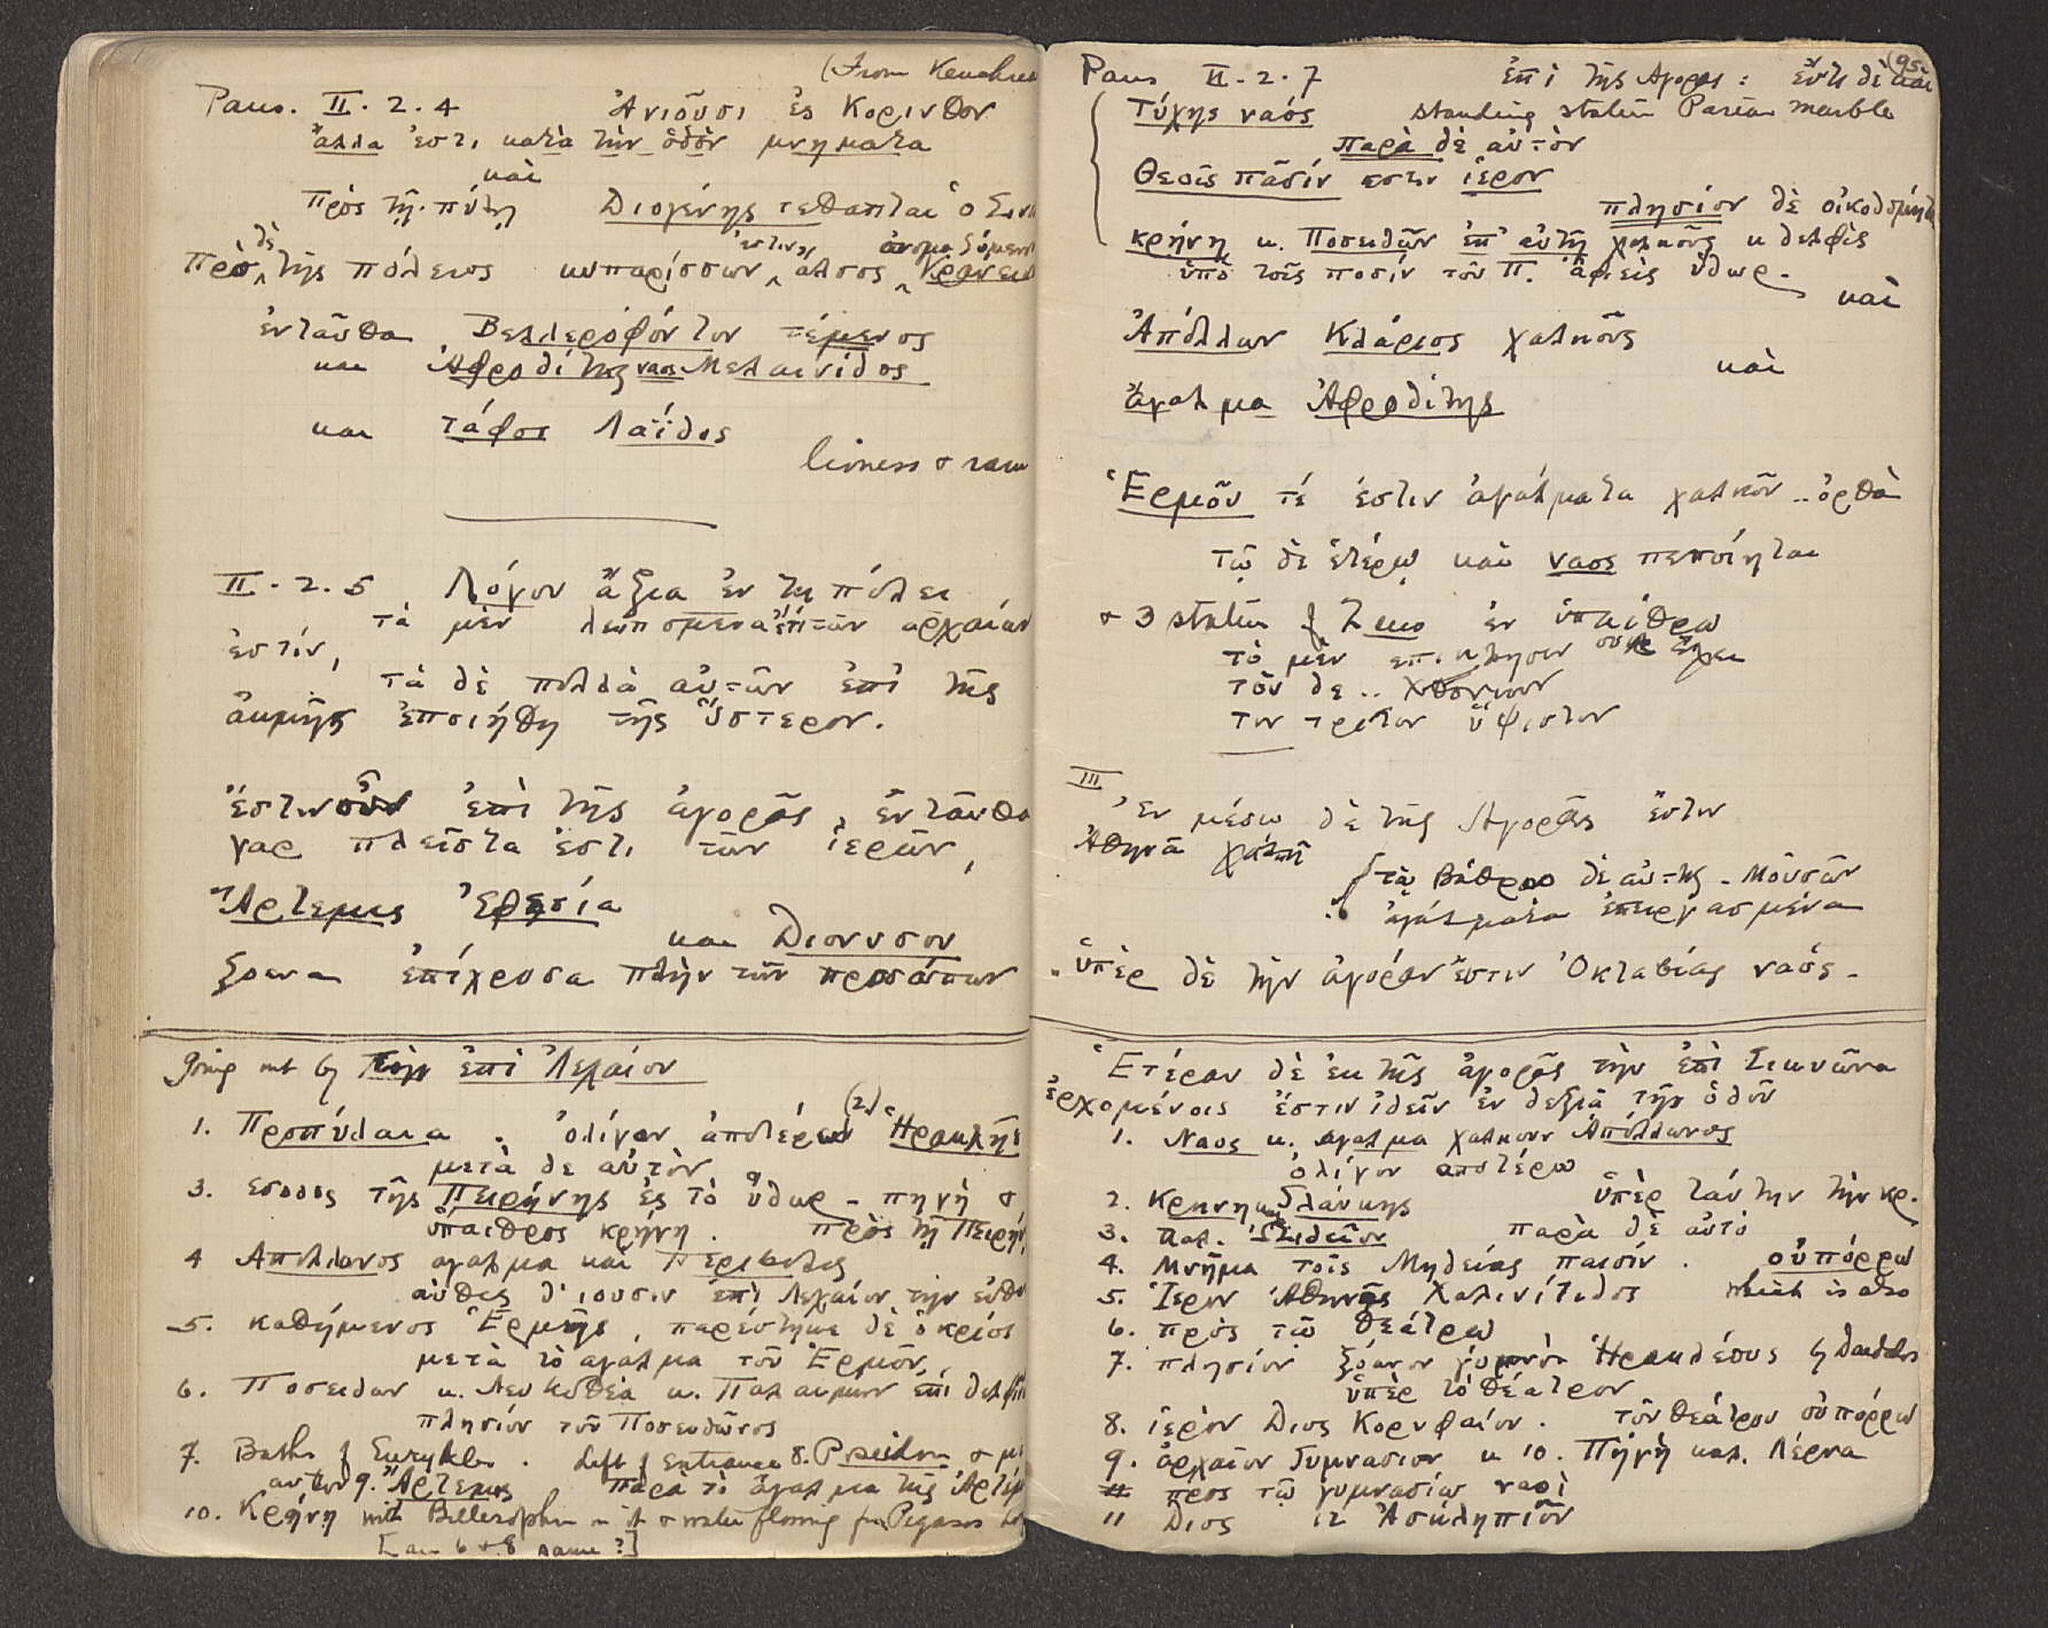 (From Kenchreai
Paus. II. 2. 4 Ἀνιοῦσι ἐς Κορινθον
ἄλλα ἐστι κατὰ τὴν ὁδὸν μνηματα
καὶ
Πρὸς τῇ πύλῃ Διογένης τεθαπται ὁ Σιν
Πρὸ δὲ τῆς πόλεως κυπαρίσσων ἐστιν ἄλσος ὀνομαζόμενον Κρανειο
ἐνταῦθα Βελλεροφόντου τέμενος
και Ἀφροδίτης ναος Μελαινίδος
και τάφος Λαΐδος
lioness & ram
II. 2. 5 Λόγου ἄξια ἐν τῃ πόλει
τὰ μὲν λειπομενα ἔτι τῶν ἀρχαίων
ἐστίν,
τὰ δὲ πολλὰ αὐτῶν ἐπὶ τῆς
ἀκμῆς ἐποιήθη τῆς ὕστερον.
Ἔστιν οὖν ἐπὶ τῆς ἀγορᾶς, ἐνταῦθα
γαρ πλεῖστα ἐστι τῶν ἱερῶν,
Ἄρτεμις Ἐφεσία
και Διονυσου
ξοανα ἐπίχρυσα πλὴν τῶν προσώπων
going out by τὴν ἐπὶ Λεχαίου
1. Προπύλαια . ὀλίγον ἀπωτέρω (2) Ἡρακλῆς
μετὰ δε αὐτὸν
3. εσοδος τῆς Πειρήνης ἐς τὸ ὕδωρ - πηγὴ &
ὕπαιθρος κρήνη . πρὸς τῇ Πειρήν
4 Απολλωνος αγαλμα καὶ περιβολος
αὖθις δ' ιουσιν ἐπὶ Λεχαίου την εὐθυ
5. καθήμενος Ἑρμῆς, παρέστηκε δὲ ὁ κρίος
μετὰ τὸ αγαλμα τοῦ Ἑρμοῦ,
6. Ποσειδων κ. Λευκοθέα κ. Παλαιμων ἐπὶ δελφῖν
πλησίον τοῦ Ποσειδῶνος
7. Baths of Eurykles . Left of entrance 8. Poseidon &
αυτον 9. Ἄρτεμις παρὰ τὸ ἄγαλμα τῆς Ἀρτέμ
10. Κρήνη with Bellerophon in it & water flowing fr. Pegasos
[are 6 & 8 same ?]
(95
Paus II. 2. 7 ἐπὶ τῆς Αγορας : ἔστι δὲ καὶ
Τύχης ναός standing statue Parian marble
παρὰ δὲ αὐτὸν
Θεοῖς πᾶσίν εστιν ἱερον
πλησίον δὲ οἰκοδόμητα
κρήνη κ. Ποσειδῶν ἐπ' αὐτῇ χαλκοῦς κ δελφὶς
ὑπὸ τοῖς ποσίν τοῦ Π. ἀφιεὶς ὕδωρ.
καὶ
Ἀπόλλων Κλάριος χαλκοῦς
καὶ
ἄγαλμα Ἀφροδίτης
Ἑρμοῦ τέ ἐστιν ἀγάλματα χαλκοῦ .. ὀρθὰ
τῷ δὲ ἑτέρῳ καὶ ναος πεποίηται
& 3 statues of Zeus ἐν ὑπαίθρω
τὸ μὲν επικλησιν οὐκ ἔχει
τὸν δε .. χθονιον
τον τριτον ὕψιστον
III
Ἐν μέσω δὲ τῆς Αγορᾶς ἔστιν
Ἀθηνᾶ χαλκῆ
τῷ Βάθρω δὲ αὐτῆς . Μουσῶν
ἀγάλματα ἐπειργασμένα
ὑπὲρ δὲ τὴν ἀγορὰν ἔστιν Ὀκταβίας ναός -
Ἑτέραν δὲ ἐκ τῆς ἀγορᾶς τὴν ἐπὶ Σικυῶνα
ἐρχομένοις ἔστιν ἰδεῖν ἐν δεξιᾷ τῆς ὁδοῦ
1. Ναος κ. αγαλμα χαλκουν Ἀπόλλωνος
ὀλίγον απωτέρω
2. Κρηνη Γλαύκης ὑπὲρ ταύτην τὴν κρ.
3. καλ. Ὠιδεῖον παρὰ δὲ αὐτὸ
4. Μνῆμα τοῖς Μηδείας παισίν . οὐ πόρρω
5. Ἱερον Ἀθηνᾶς Χαλινίτιδος which is also
6. πρὸς τῷ θεάτρω
7. πλησίον ξόανον γυμνὸν Ἡρακλέους by Daedalos
ὑπὲρ τὸ θέατρον
8. ἱερὸν Διος Κορυφαίου . τοῦ θεάτρου οὐ πόρρω
9. ἀρχαῖον Γυμνασιον κ 10. Πηγὴ καλ. Λέρνα
προς τῷ γυμνασίω ναοὶ
11 Διος 12 Ἀσκληπιοῦ